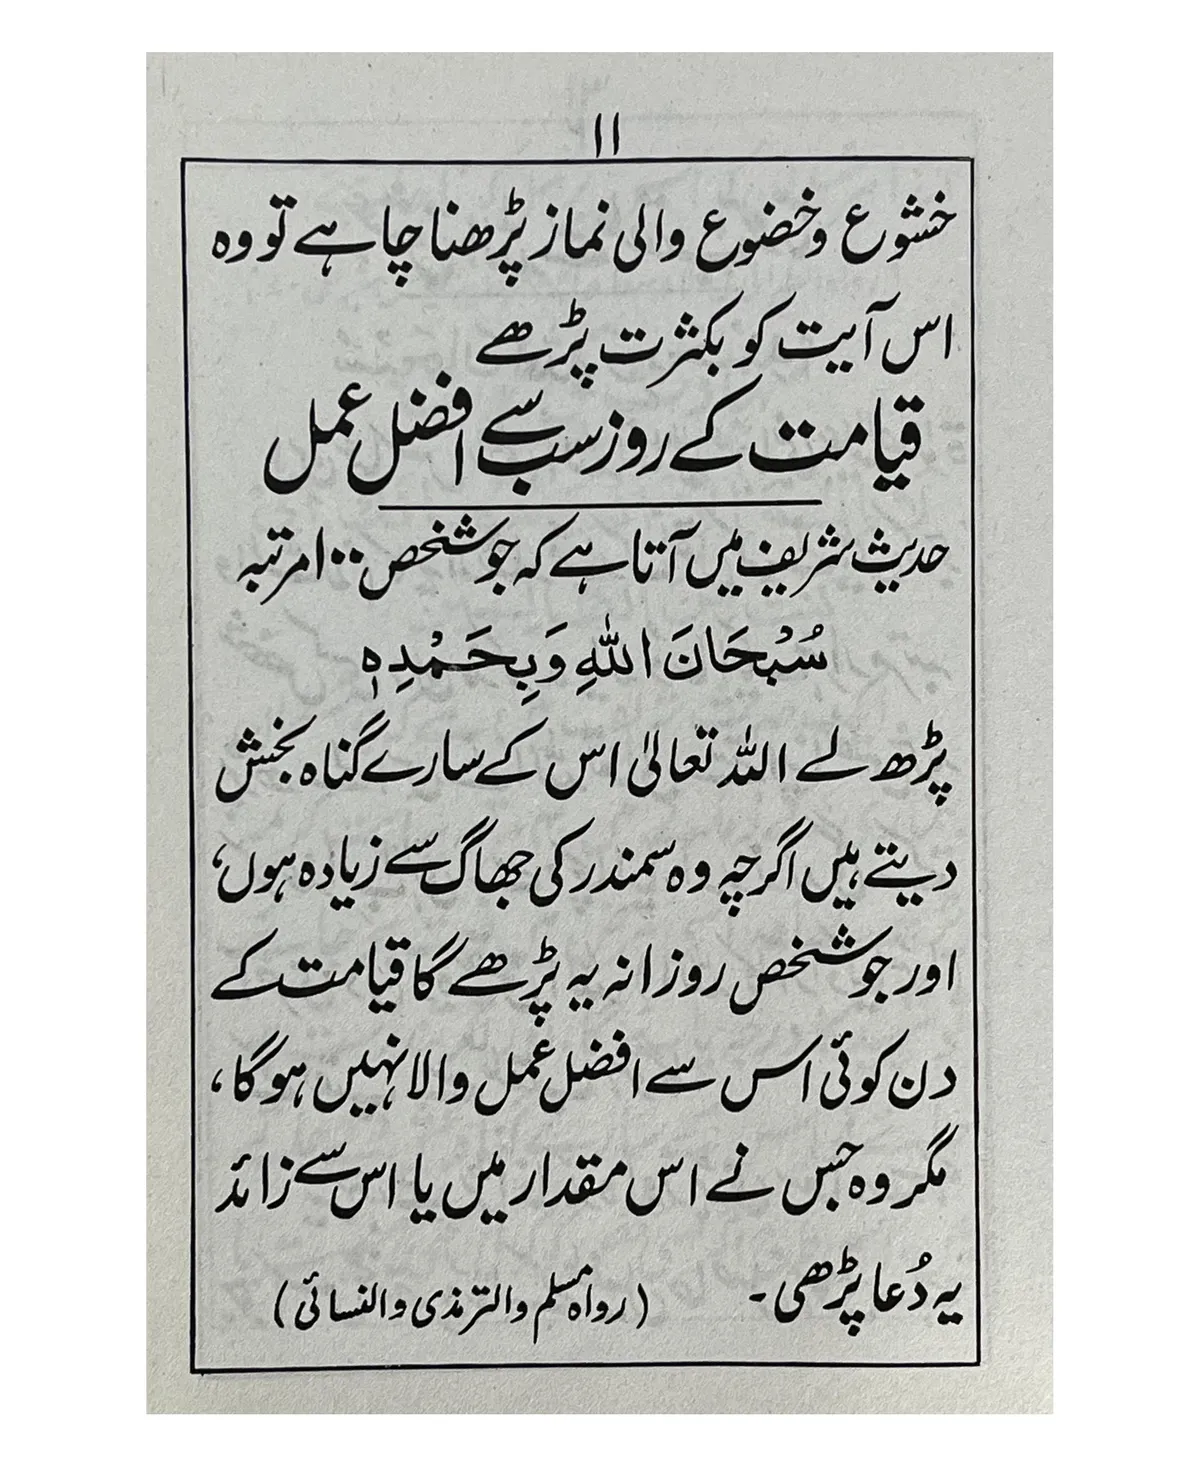 ۱۱
خشوع وخضوع والی نماز پڑھنا چاہے تو وہ
اس آیت کو بکثرت پڑھے
قیامت کے روز سب سے افضل عمل
حدیث شریف میں آتا ہے کہ جو شخص ۱۰۰ مرتبہ
سُبْحَانَ اللهِ وَبِحَمْدِہٖ
پڑھ لے اللہ تعالیٰ اس کے سارے گناہ بخش
دیتے ہیں اگرچہ وہ سمندر کی جھاگ سے زیادہ ہوں،
اور جو شخص روزانہ یہ پڑھے گا قیامت کے
دن کوئی اس سے افضل عمل والا نہیں ہوگا،
مگر وہ جس نے اس مقدار میں یا اس سے زائد
یہ دُعا پڑھی۔ (رواہ مسلم والترمذی والنسائی)